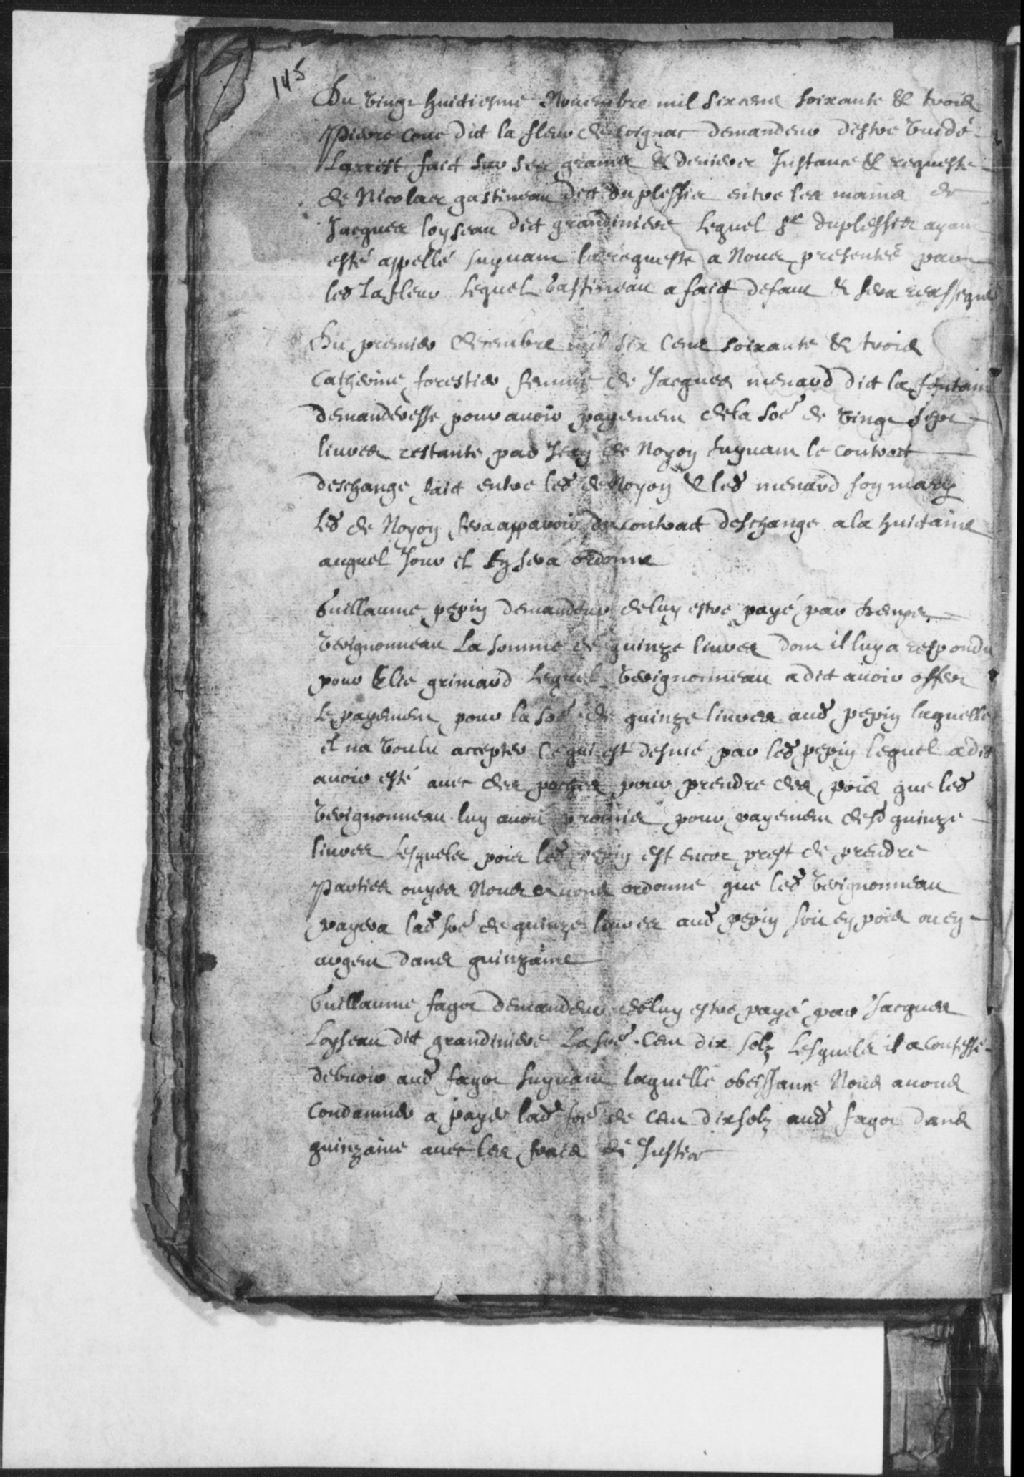 145
Du vingt huitiesme Novembre mil six cens soixante & trois
Pierre dict la fleur de coignac demandeur d'estre vuidé
Larrest faict sur ses grains & deniers Instance & requeste
de Nicolas gastineau dict duplessis entre les mains de
Jacques loyseau dict grandiniere Lequel Sr duplessis ayant
esté appellé suyvant la requeste a Nous presentée par
led Lafleur Lequel Gastineau a faict defaut & sera reassigné
Du premier decembre mil six cens soixante & trois
Catherine forestier femme de Jacques menard dict la fontaine
demanderesse pour avoir payement de la soe de vingt sept
livres restante par Jean de Noyon suyvant le contract
deschange faict entre led de Noyon & led menard son mary
Led de Noyon fera apparoir du contract deschange a la huictaine
auquel Jour il en sera ordonné
Guillaume pepin demandeur de luy estre payé par
Vevignonneau La somme de quinze livres dont il luy a respondu
pour Elie grimard Lequel Vevignonneau a dict avoir offert
Le payement pour la soe de quinze livres aud pepin laquelle
il n'a voulu accepter Ce qui est desnié par led pepin lequel a dit
avoir esté avec des poches pour prendre des pois que led
Vevignonneau luy avoit promis pour payement desd quinze
livres Lesquels pois led pepin est encor prest de prendre
Parties ouyes Nous avons ordonné que led Vevignonneau
payera lad soe de quinze livres aud pepin soit en pois ou en
argent dans quinzaine
Guillaume fagot demandeur de luy estre payé par Jacques
Loyseau dit grandiniere La soe Cent dix solz Lesquels il a confessé
debvoir aud fagot suyvant laquelle obeissance Nous avons
Condamné a payer lad soe de cent dix solz aud fagot dans
quinzaine avec les frais de Justice